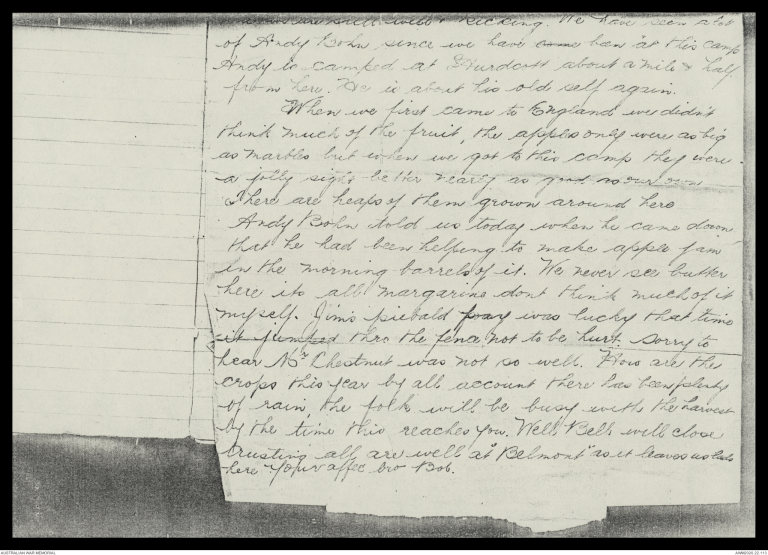 are still well & kicking. We have seen a lot
of Andy Bohn since we have come ban at this camp
Andy is camped at Hurdcott about a mile & half
from here. He is about his old self again.
When we first came to England we didn't
think much of the fruit, the apples only were as big
as marbles but when we got to this camp they were
a jolly sight better nearly as good as our own
There are heaps of them grown around here
Andy Bohn told us today when he came down
that he had been helping to make apple jam
in the morning barrels of it. We never see butter
here its all margarine dont think much of it
myself. Jim's piebald was lucky that time
it jumped thro the fence not to be hurt. Sorry to
hear Mr Chestnut was not so well. How are the
crops this year by all account there has been plenty
of rain, the folk will be busy with the harvest
by the time this reaches you. Well Bell will close
trusting all are well at "Belmont" as it leaves us lads
here Your affec bro Bob.
AUSTRALIAN WAR MEMORIAL